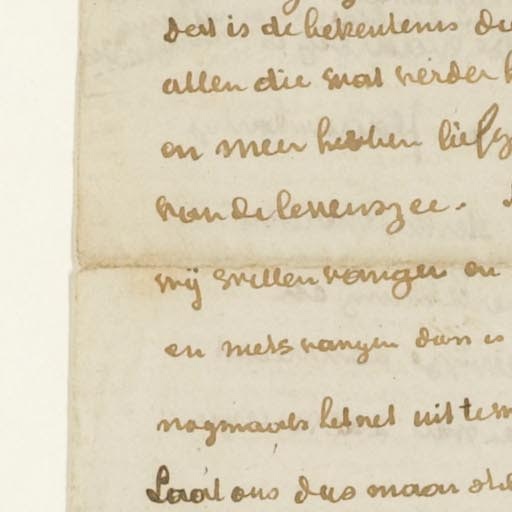 dat is de betekenis de
allen die wat verder k
en meer hebben lief
van de levenszee.
wij willen vangen en
en niets vangen dan is
nogmaals het net uit te w
Laat ons dus maar